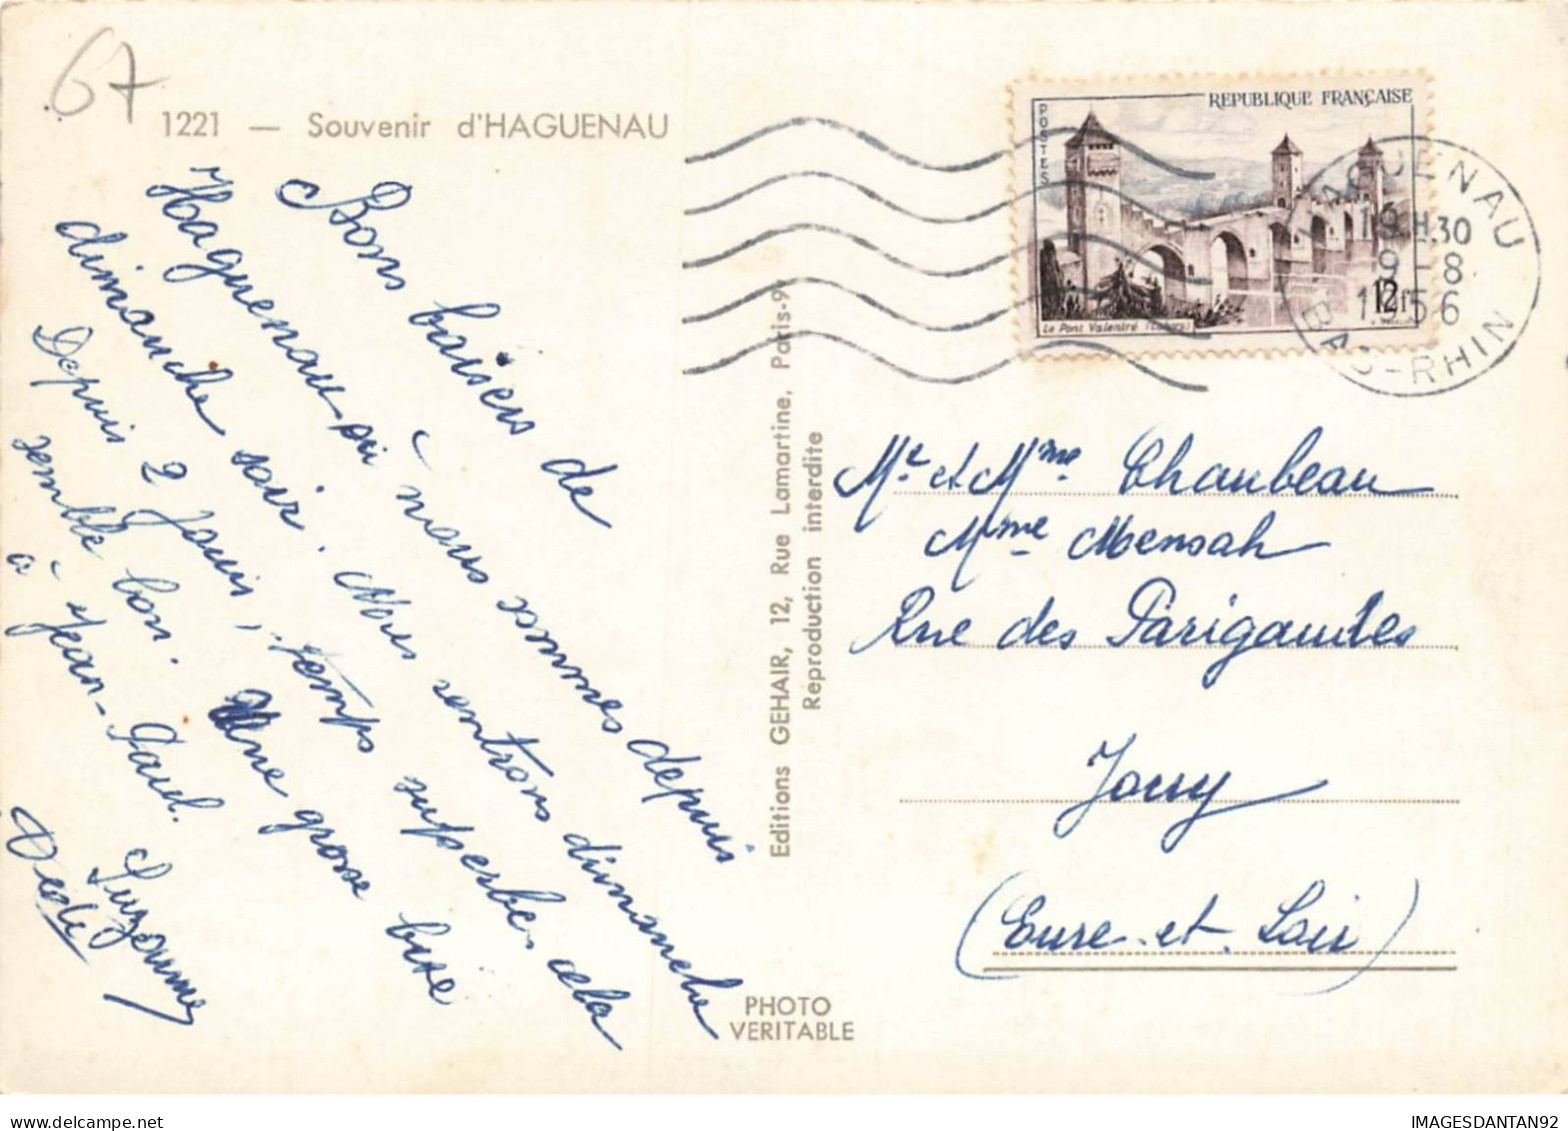 67
1221 — Souvenir d'HAGUENAU
Bons baisers de
Haguenau où nous sommes depuis
dimanche soir. Nous rentrons dimanche
Depuis 2 jours, temps superbe. cela
semble bon. Une grosse bise
à Jean-Paul.
Suzanne
Dédé
Editions GEHAIR, 12, Rue Lamartine, Paris-9
Reproduction interdite
PHOTO
VERITABLE
POSTES
REPUBLIQUE FRANÇAISE
Le Pont Valentré (Cahors)
12f
HAGUENAU
19 H30
9 - 8
1956
BAS-RHIN
Mr et Mme Chaubeau
Mme Mensah
Rue des Parigaudes
Jouy
(Eure-et-Loir)
IMAGESDANTAN92